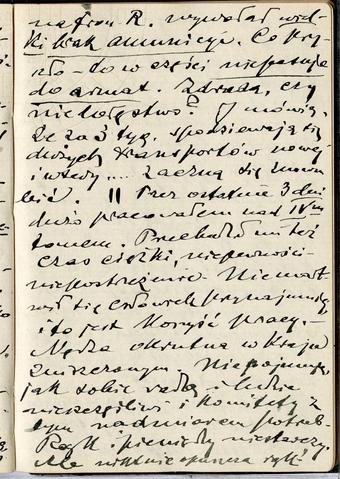 na fron R. wywołał wiel-
ki brak amunicyi. Co przy-
szło – to w części nie pasuje
do armat. Zdrada, czy
niedołęstwo? I mówią,
że za 3 tyg. spodziewają się
dużych transportów nowej
i wtedy.... zaczną się znowu
bić. || Przez ostatnie 3 dni
dużo pracowałem nad IV m
tomem. Przechodził mi też
czas ciężki, niepewności
niepostrzeżenie. Nie mart-
wił się człowiek przynajmniej,
i to jest korzyść pracy. –
Nędza okrutna w kraju
zniszczonym. Nie pojmuję,
jak sobie radzą i ludzie
nieszczęśliwi i komitety z
tym nadmiarem potrzeb.
Rąk i pieniędzy nie starczy.
Ale nikt nie opuszcza rąk –